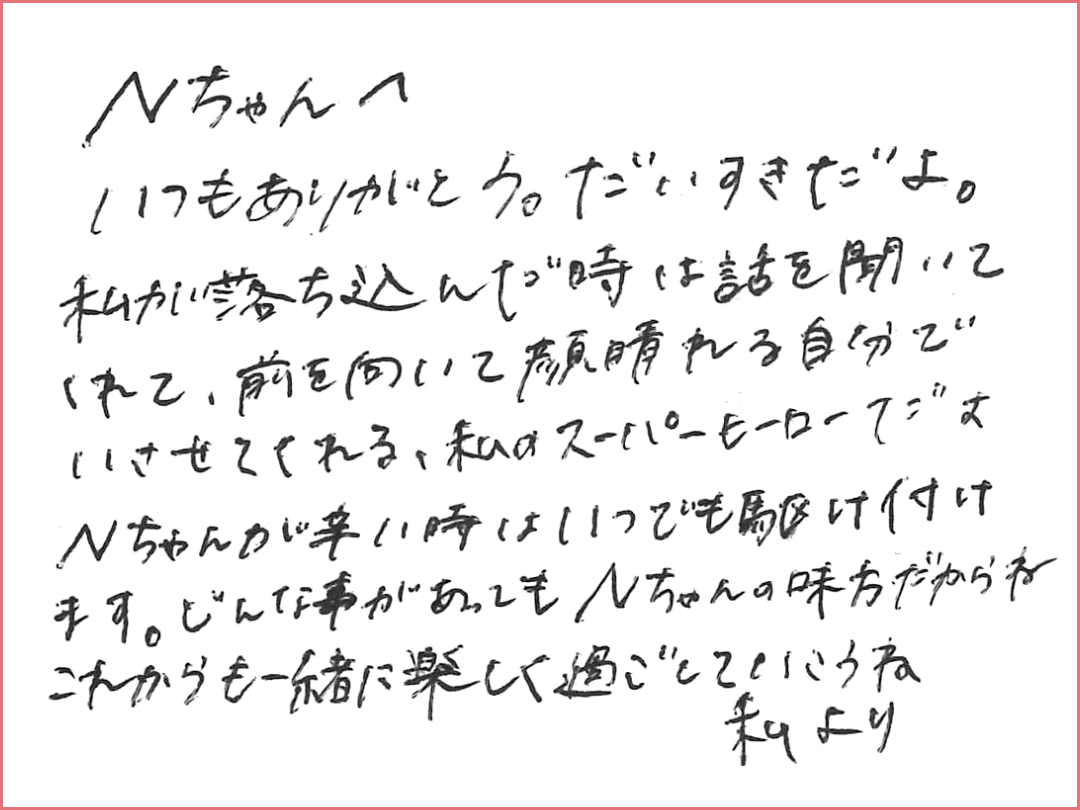 Nちゃんへ
いつもありがとう。だいすきだよ。
私が落ち込んだ時は話を聞いて
くれて、前を向いて顔晴れる自分で
いさせてくれる、私のスーパーヒーローだよ
Nちゃんが辛い時はいつでも駆け付け
ます。どんな事があってもNちゃんの味方だからね
これからも一緒に楽しく過ごしていこうね
私より